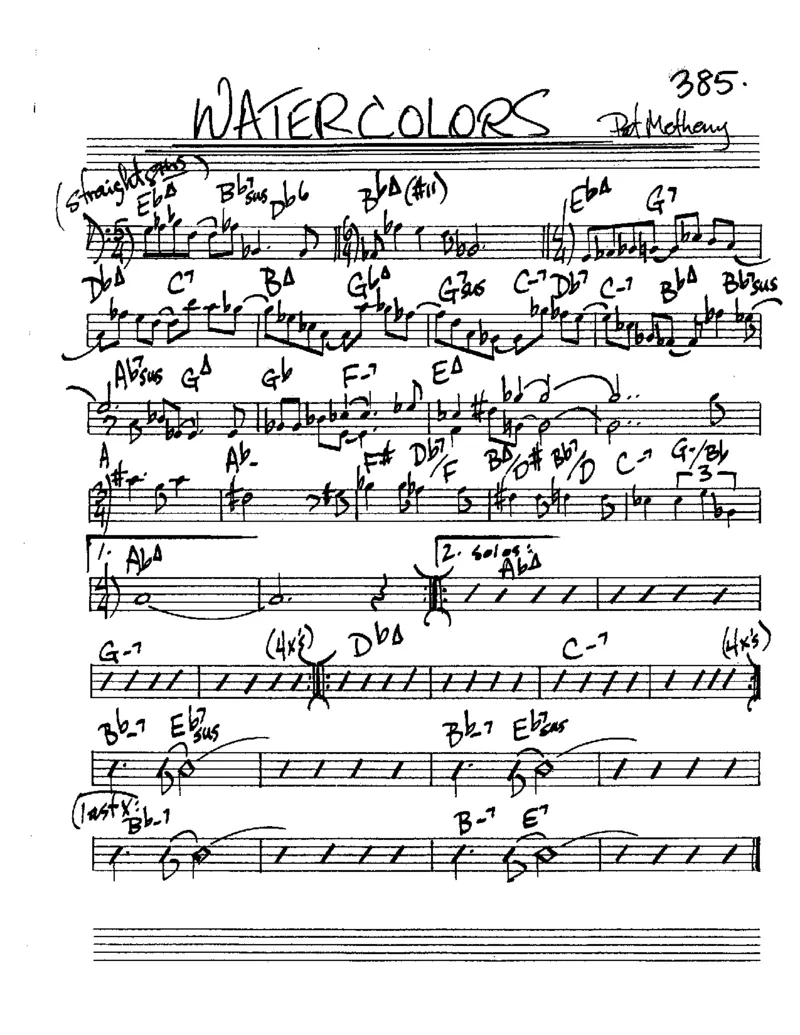 385.
WATERCOLORS
Pat Metheny
(Straight 8ths)
EbΔ Bb7sus Db6 BbΔ(#11) EbΔ G7
5/4 6/4 4/4
DbΔ C7 BΔ GbΔ G7sus C-7 Db7 C-7 BbΔ Bb7sus
Ab7sus GΔ Gb F-7 EΔ
A Ab- F# Db7/F BΔ/D# Bb7/D C-7 G-/Bb
3/4 3
1. AbΔ 2. solos: AbΔ
4/4
G-7 (4x's) DbΔ C-7 (4x's)
Bb-7 Eb7sus Bb-7 Eb7sus
(last x:
Bb-7 B-7 E7